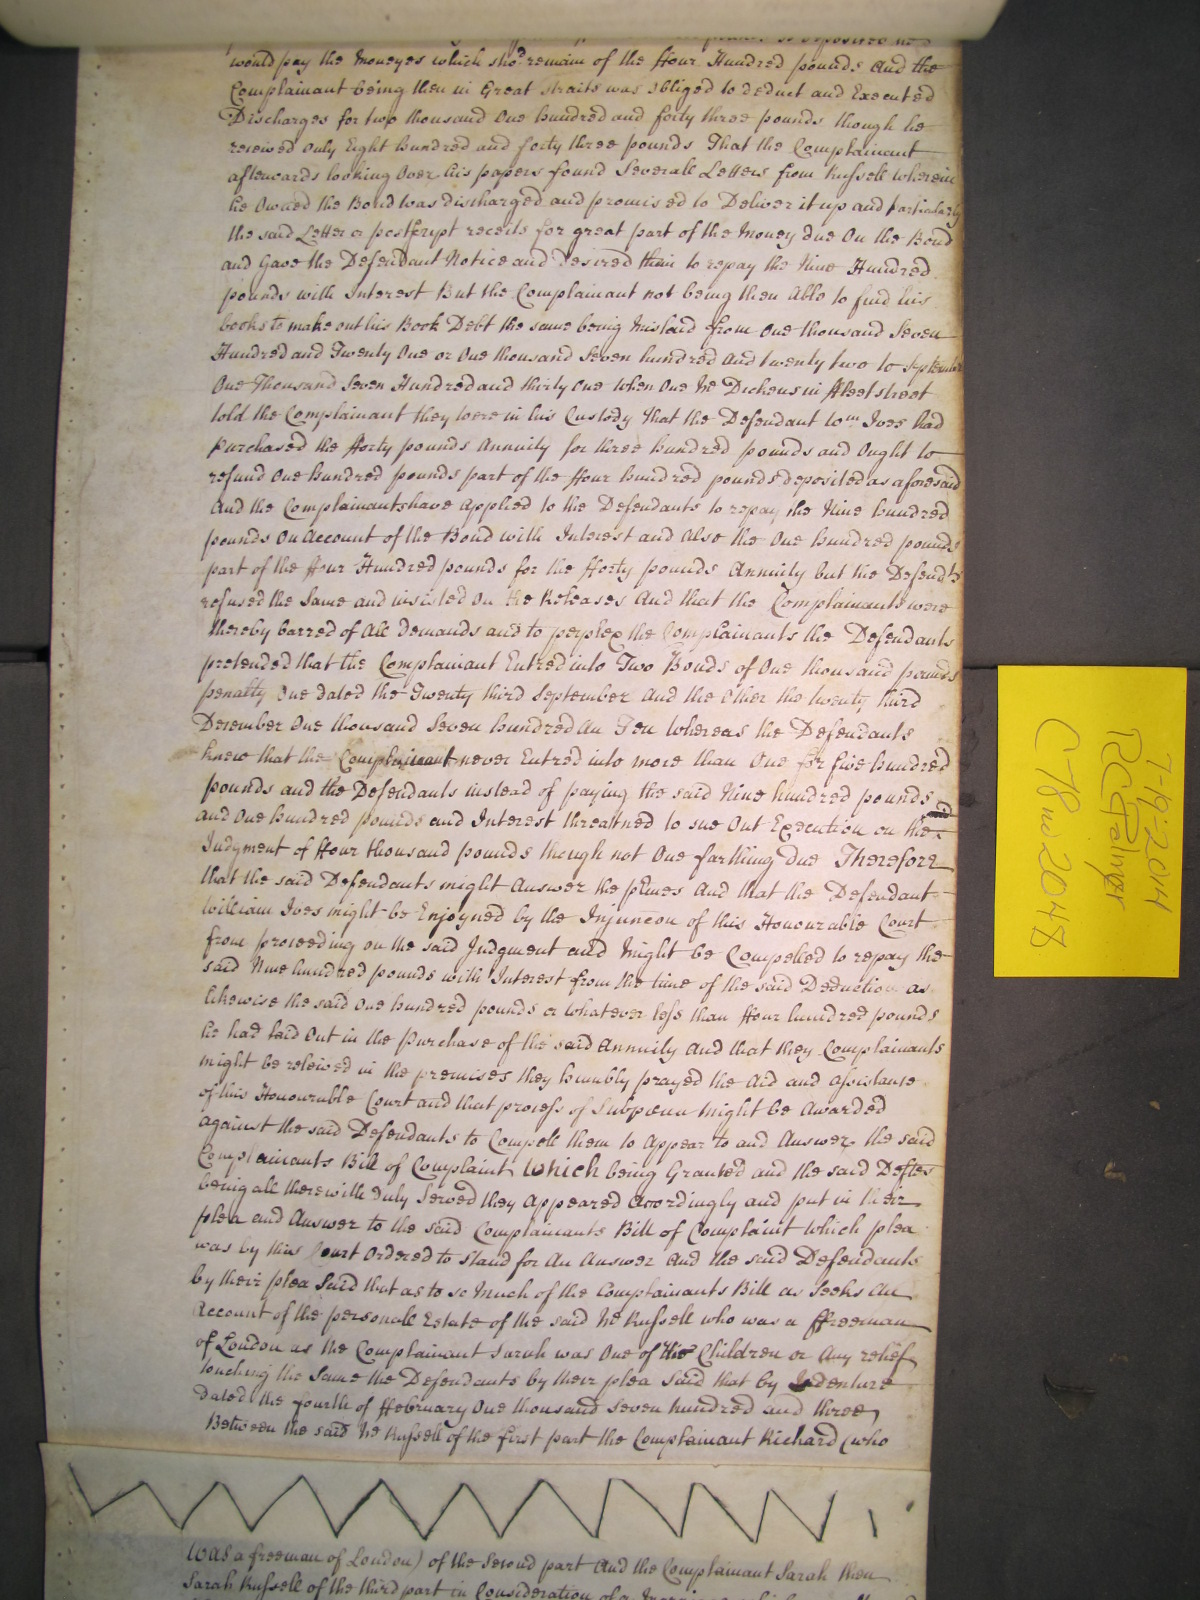 would pay the Moneyes which sho.d remain of the ffour Hundred pounds And the
Complainant being then in Great straits was obliged to deduct and Executed
Discharges for two thousand One hundred and forty three pounds though he
received only Eight hundred and forty three pounds That the Complainant
afterwards looking Over his papers found Severall Letters from Russell wherein
he Owned the Bond was discharged and promised to Deliver it up and particularly
the said Letter or postscrypt receits for great part of the Money due On the Bond
and Gave the Defendant Notice and desired them to repay the Nine Hundred
pounds with Interest But the Complainant not being then Able to find his
books to make out his Book Debt the same being Mislaid from One thousand Seven
Hundred and Twenty One or One thousand Seven hundred And twenty two to September
One Thousand Seven Hundred and thirty One when One Mr Dickens in ffleet street
told the Complainant they were in his Custody That the Defendant Wm Ives had
purchased the fforty pounds Annuity for three hundred pounds and Ought to
refund One hundred pounds part of the ffour hundred pounds deposited as aforesaid
And the Complainants have applyed to the Defendants to repay the Nine hundred
pounds On Account of the Bond with Interest and Also the One hundred pounds
part of the ffour Hundred pounds for the fforty pounds Annuity but the Defendts
refused the Same and insisted On the Releases And that the Complainants were
thereby barred of All Demands and to perplex the Complainants the Defendants
pretended that the Complainant Entred into Two Bonds of One thousand pounds
penalty One dated the Twenty third September And the Other the twenty third
December One thousand Seven hundred An Ten Whereas the Defendants
knew that the Complainant never Entred into more than One for five hundred
pounds and the Defendants instead of paying the said Nine hundred pounds
and One hundred pounds and Interest threatned to sue Out Execution on the
Judgment of ffour thousand pounds though not One farthing due Therefore
that the said Defendants might Answer the p'mes And that the Defendant
William Ives might be Enjoyned by the Injuncon of this Honourable Court
from proceeding on the said Judgment and Might be Compelled to repay the
said Nine hundred pounds with Interest from the time of the said Deduction as
likewise the said One hundred pounds or whatever less than ffour hundred pounds
he had laid Out in the Purchase of the said Annuity And that they Complainants
might be releived in the premises they humbly prayed the Aid and assistance
of this Honourable Court and that process of Subpoena Might be Awarded
against the said Defendants to Compell them to Appear to and Answer the said
Complainants Bill of Complaint Which being Granted and the said Defts
being all therewith duly Served they Appeared Accordingly and put in their
plea and Answer to the said Complainants Bill of Complaint which plea
was by this Court Ordered to stand for An Answer And the said Defendants
by their plea Said that as to so Much of the Complainants Bill as Seeks An
Account of the personall Estate of the said Mr Russell who was a ffreeman
of London as the Complainant Sarah was One of His Children or Any relief
touching the Same the Defendants by their plea Said that by Indenture
dated the fourth of ffebruary One thousand Seven hundred and three
Between the said Mr Russell of the first part the Complainant Richard (who
Was a freeman of London) of the Second part And the Complainant Sarah then
Sarah Russell of the third part in Consideration of a
7-10-2014
RCPalmer
C78no2048